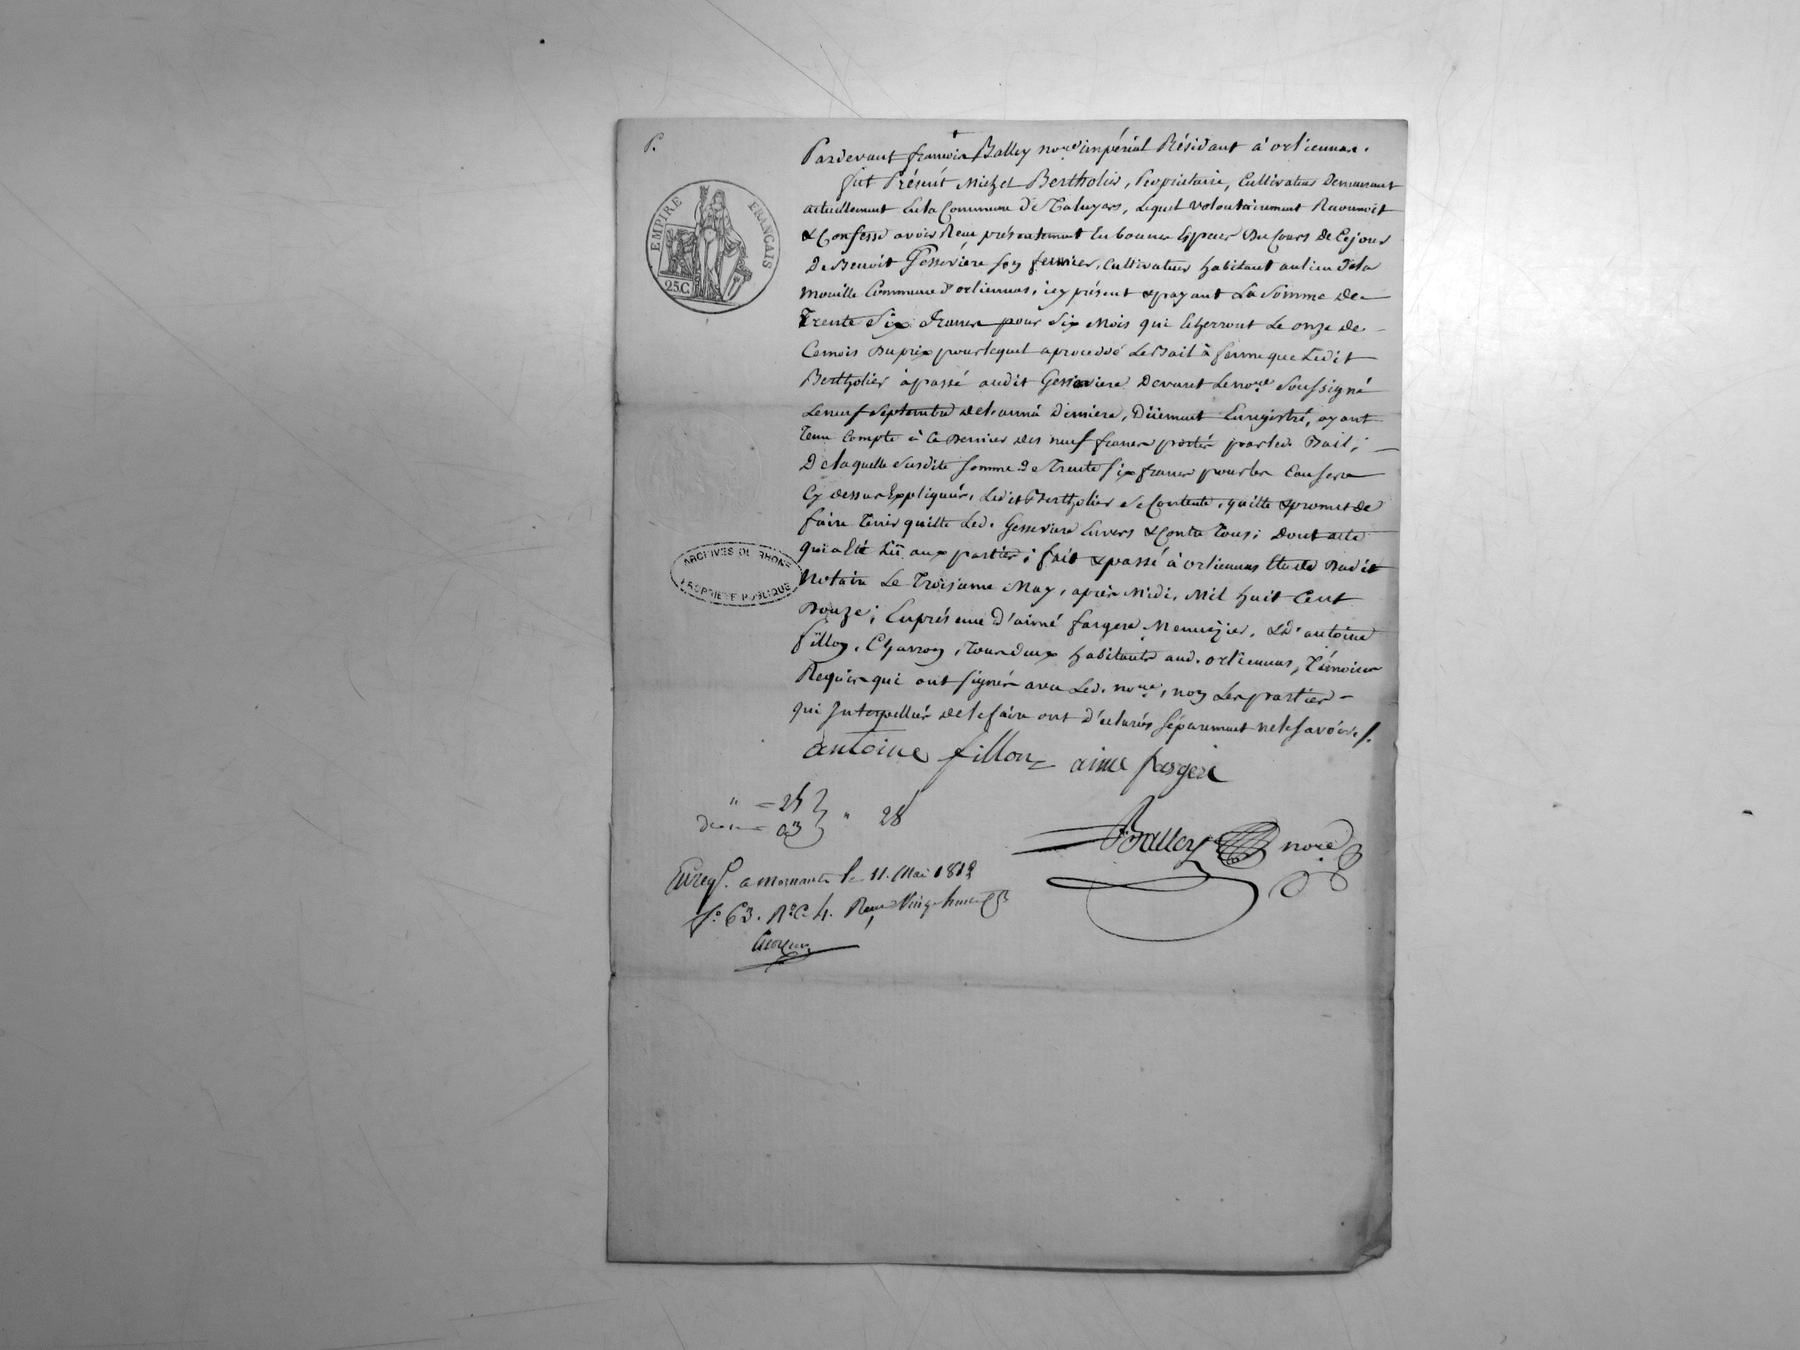 P.
Pardevant françois Balley no.re impérial Résidant à orliennas.
fut Présent Michel Bertholier, Propriétaire, Cultivateur Demeurant
actuellement En la Commune de Taluyers, Lequel volontairement Reconnoit
& Confesse avoir Reçu présentement En bonnes Espèces Du Cours De Ce jour
De Benoit Gesseviere son fermier, Cultivateur habitant au lieu De la
Mouille Commune d'orliennas, icy présent & payant La Somme De
Trente Six francs pour Six Mois qui Echerront Le onze De
Ce mois Du prix pour lequel a procedé Le Bail à ferme que Ledit
Bertholier à passé audit Gesseviere Devant Le no.re Soussigné
Le neuf Septembre de l'année Derniere, Dûement Enregistré, ayant
Tenu Compte à Ce Dernier des neuf francs portés par led. Bail;
De laquelle Susdite Somme De Trente Six francs pour les Causes
Cy dessus Expliquées, Ledit Bertholier Se Contente, quitte & promet De
faire Tenir quitte Led. Gesseviere Envers & Contre Tous; Dont acte
qui a Eté Lû aux parties; fait & passé à orliennas Etude Dudit
Notaire Le Troisieme May, après Midi, Mil huit Cent
Douze; En présence d'aimé fargere Menuizier, & d'antoine
fillon, Charron, Tous deux habitants aud. orliennas, Témoins
Requis qui ont signés avec Led. no.re, non Les parties
qui Interpellés de le faire ont déclarés séparement ne le savoir./.
antoine fillon aimé fargere
" = 25
03 " 28
Balley no.re
ARCHIVES DU RHONE
PROPRIETE PUBLIQUE
EMPIRE FRANÇAIS
25C
Enreg. a Mornant le 11. Mai 1812
f.o 63. R.o C. 4. Reçu Vingt huit c.